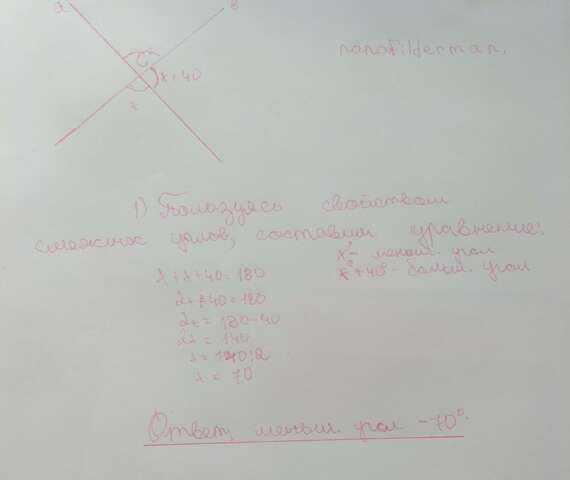 a
b
x+40
x
nanofilderman.
1) Пользуясь свойством
смежных углов, составим уравнение:
x° - меньш. угол
x°+40° - больш. угол
x+x+40=180
2x+40=180
2x=180-40
2x=140
x=140:2
x=70
Ответ, меньш. угол -70°.